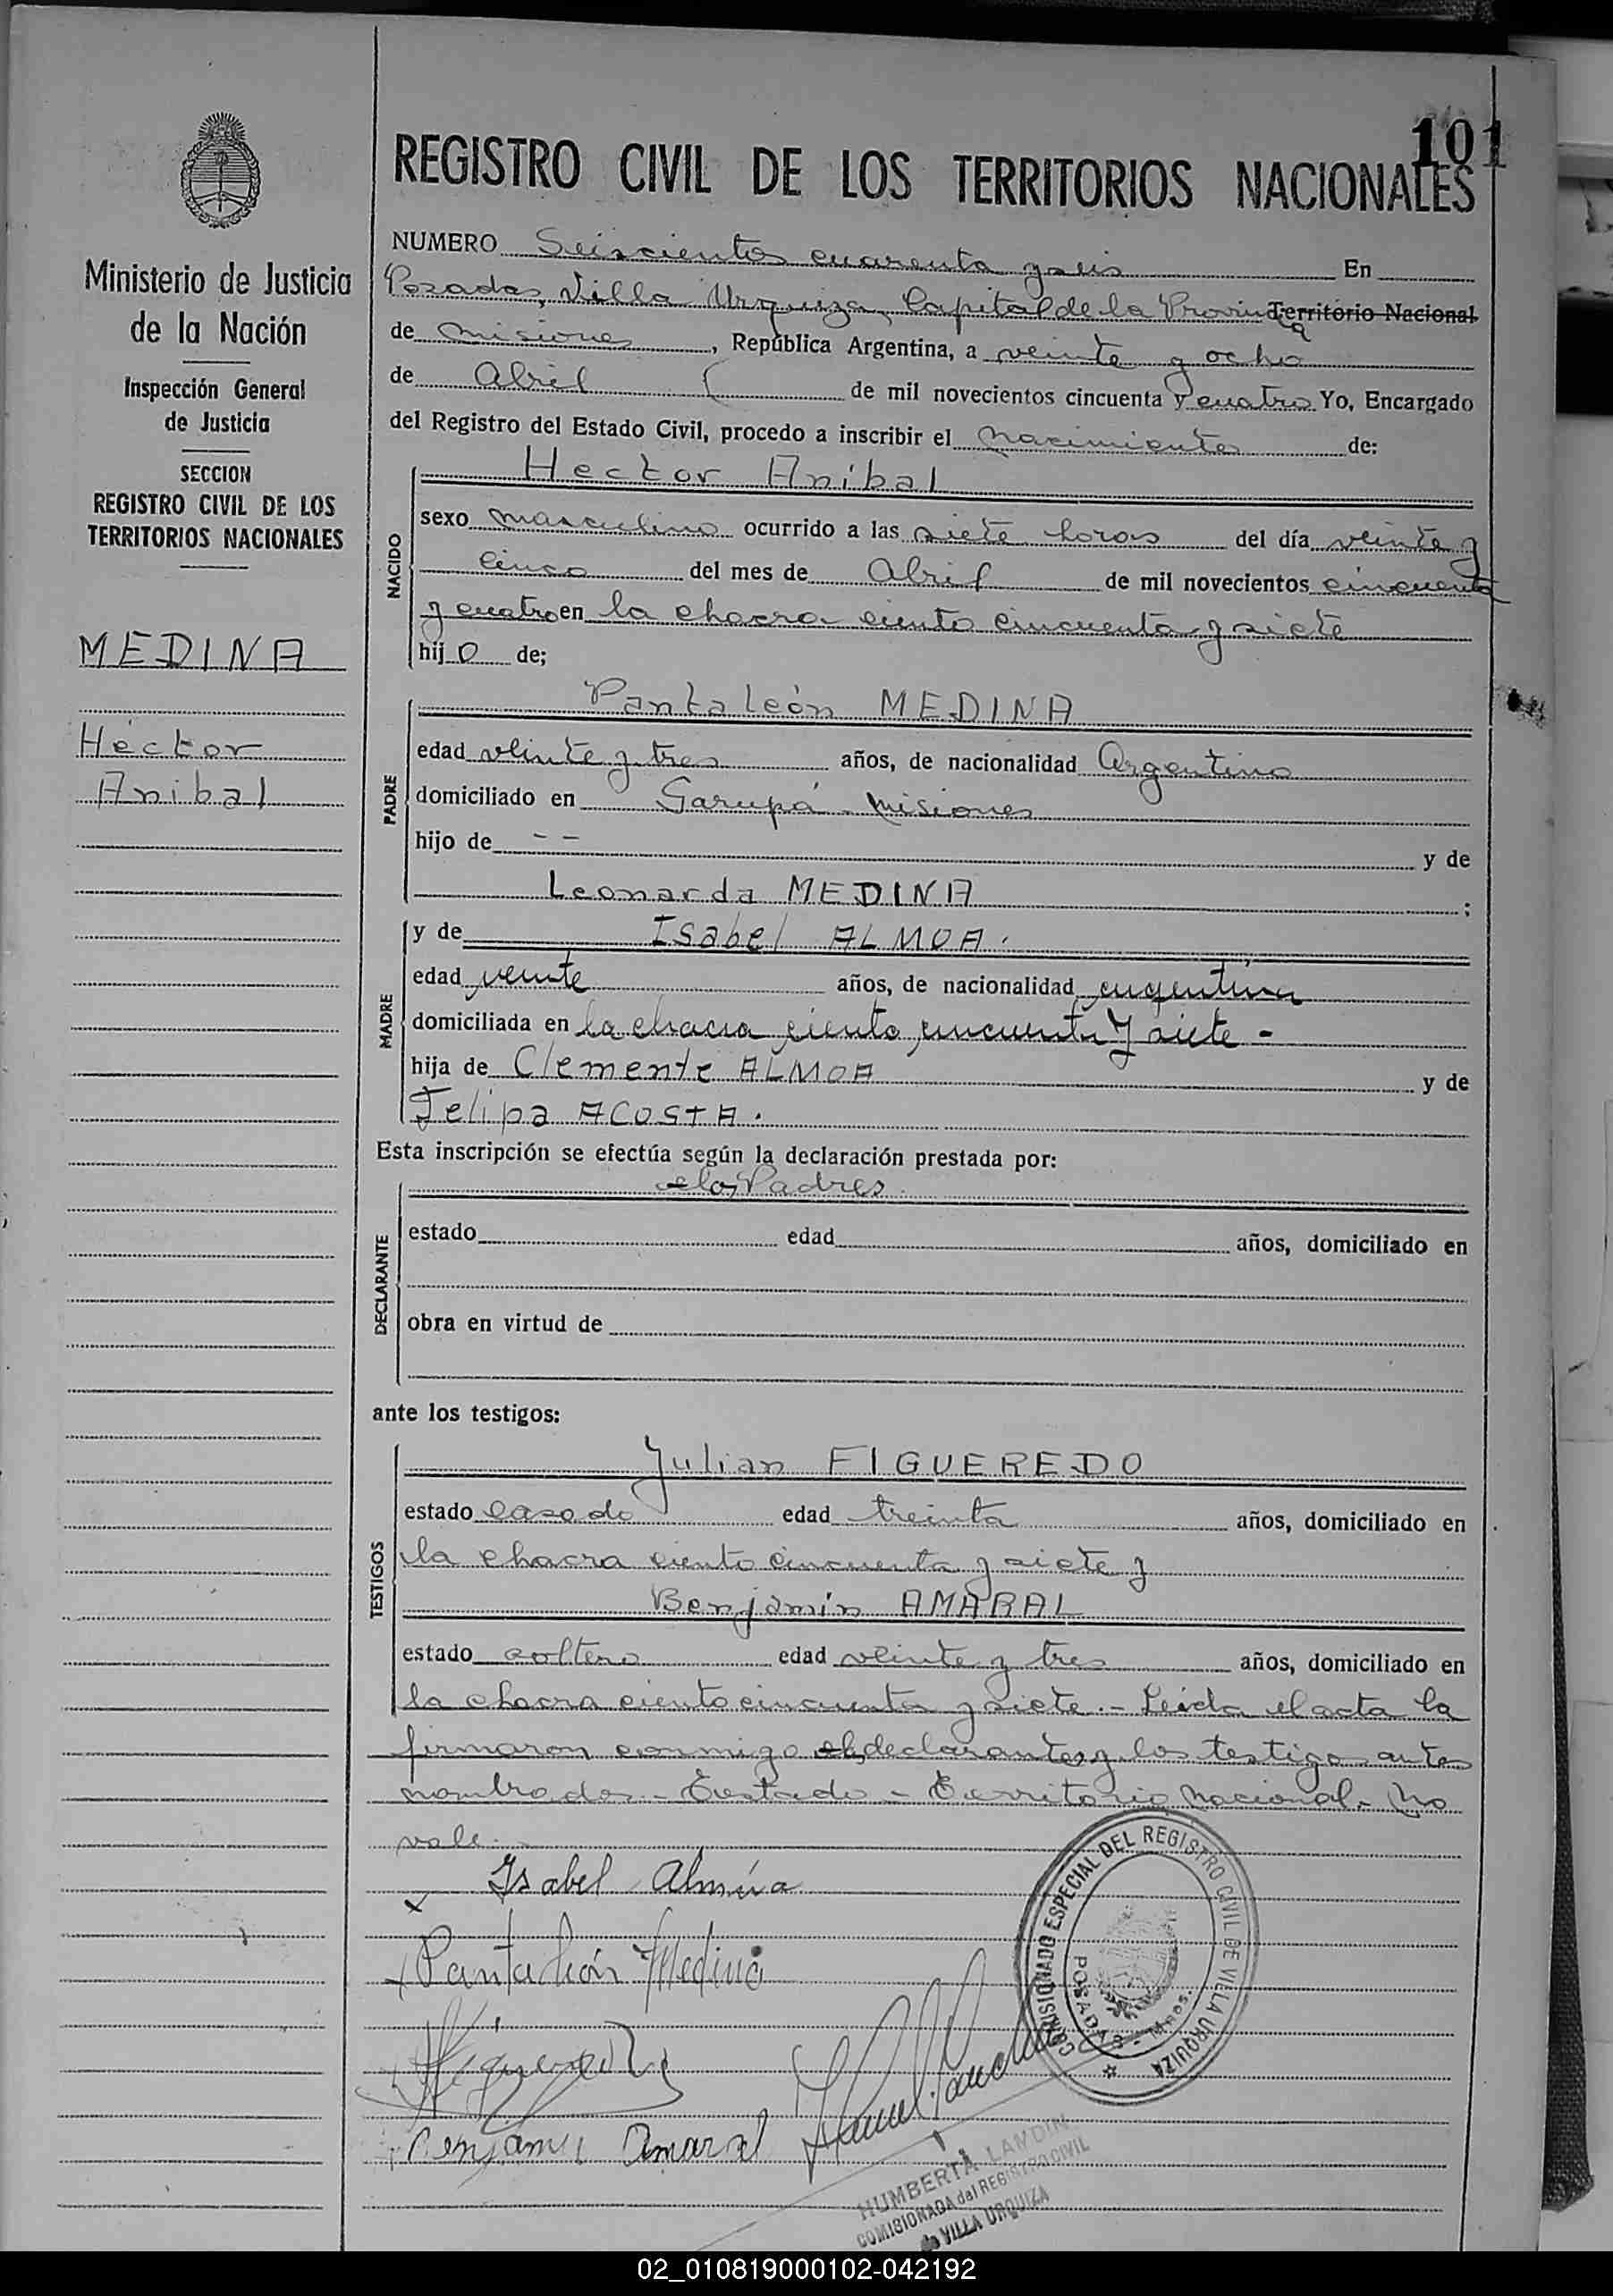 101
REGISTRO CIVIL DE LOS TERRITORIOS NACIONALES
Ministerio de Justicia
de la Nación
Inspección General
de Justicia
SECCION
REGISTRO CIVIL DE LOS
TERRITORIOS NACIONALES
MEDINA
Héctor
Anibal
NUMERO Seiscientos cuarenta y seis En
Posadas, Villa Urquiza, Capital de la Provincia Territorio Nacional
de Misiones, República Argentina, a veinte y ocho
de Abril de mil novecientos cincuenta y cuatro Yo, Encargado
del Registro del Estado Civil, procedo a inscribir el nacimiento de:
Hector Anibal
NACIDO
sexo masculino ocurrido a las siete horas del día veinte y
cinco del mes de Abril de mil novecientos cincuenta
y cuatro en la chacra ciento cincuenta y siete
hijo de;
PADRE
Pantaleón MEDINA
edad veinte y tres años, de nacionalidad Argentino
domiciliado en Garupá - Misiones
hijo de - - y de
Leonarda MEDINA ;
MADRE
y de Isabel ALMOA.
edad veinte años, de nacionalidad argentina
domiciliada en la chacra ciento cincuenta y siete -
hija de Clemente ALMOA y de
Felipa ACOSTA.
Esta inscripción se efectúa según la declaración prestada por:
DECLARANTE
los Padres
estado edad años, domiciliado en
obra en virtud de
ante los testigos:
TESTIGOS
Julian FIGUEREDO
estado casado edad treinta años, domiciliado en
la chacra ciento cincuenta y siete y
Benjamín AMARAL
estado soltero edad veinte y tres años, domiciliado en
la chacra ciento cincuenta y siete.- Leida el acta la
firmaron conmigo declarantes y los testigos antes
nombrados.- Testado - Territorio Nacional - No
vale.
Isabel Almúa
Pantaleón Medina
Figueredo
Benjamin Amaral
COMISIONADO ESPECIAL DEL REGISTRO CIVIL DE VILLA URQUIZA
POSADAS - Mnes.
HUMBERTA LANDINI
COMISIONADA del REGISTRO CIVIL
de VILLA URQUIZA
02_010819000102-042192